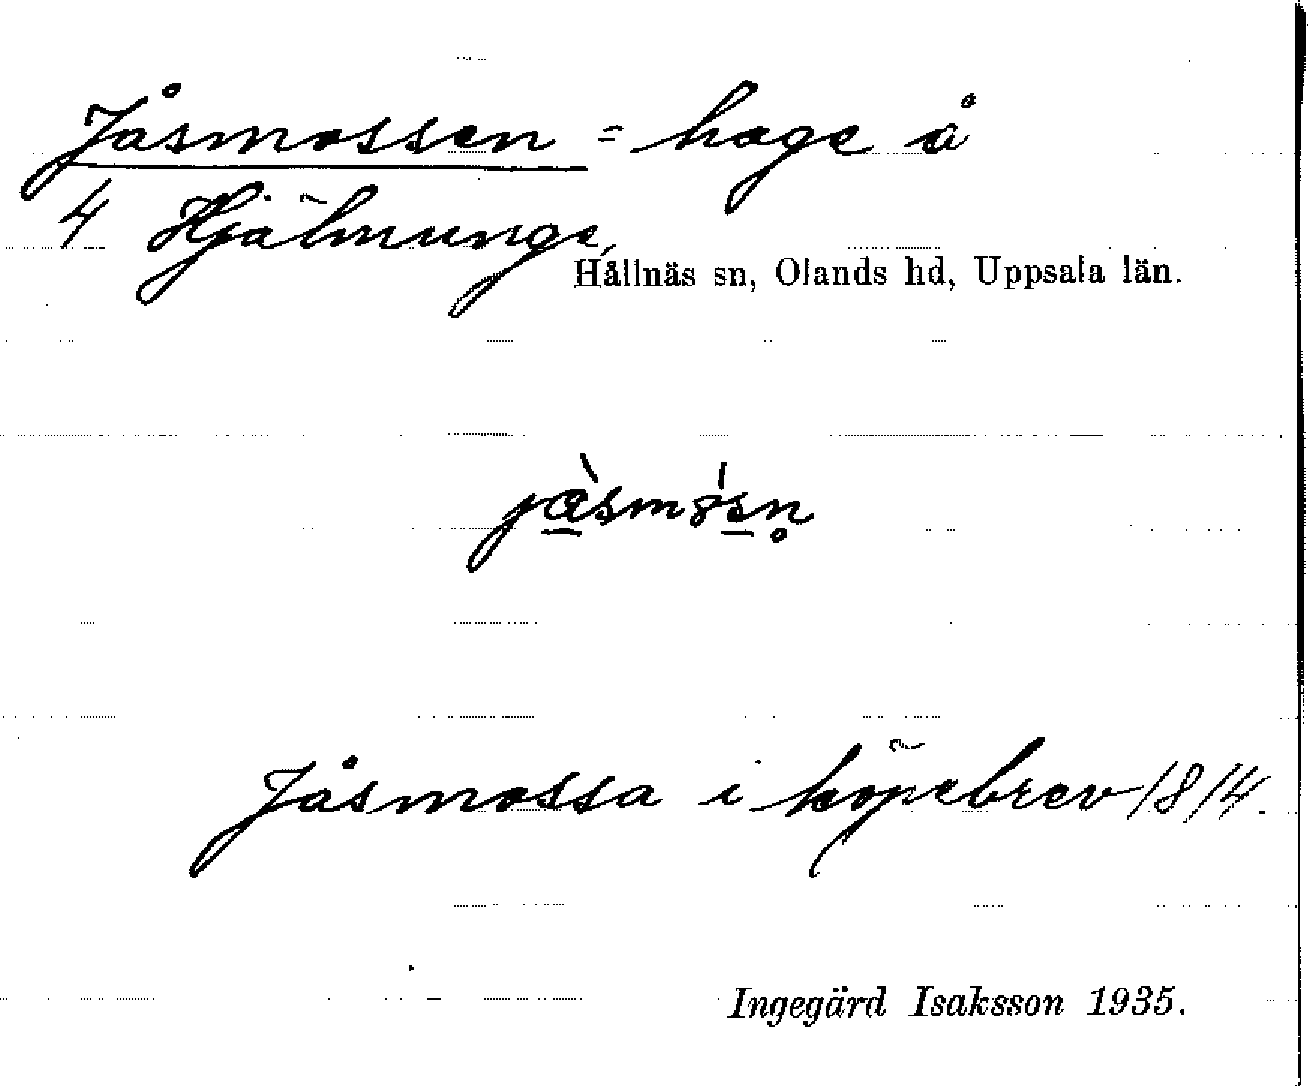 Jåsmossen = hage å
4 Hjälmunge,
Hållnäs sn, Olands hd, Uppsala län.
Jåsmossa i köpebrev 1814.
Ingegärd Isaksson 1935.